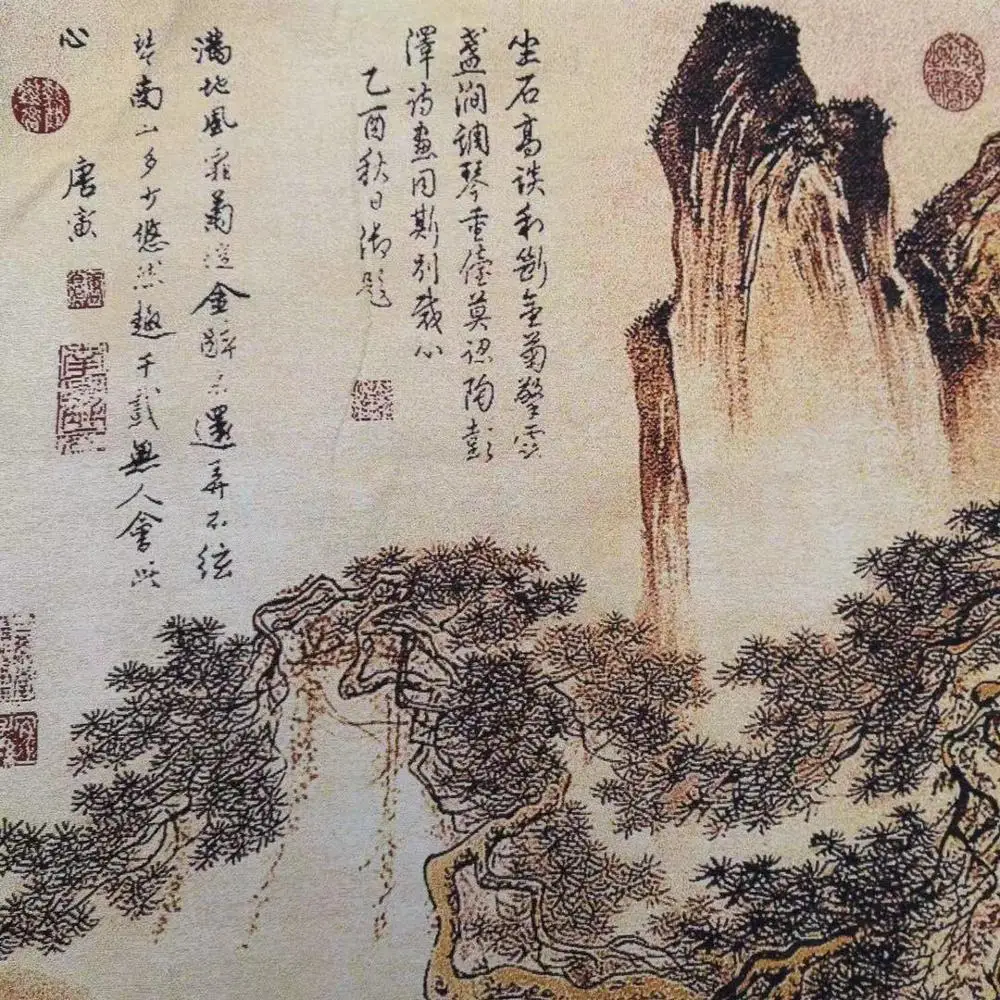 坐石高談利斷金菊擎雲
盞澗調琴重儓莫認陶彭
澤詩畫同斯別裁心
乙酉秋日御題
滿地風霜菊綻金醉來還弄不絃
琴南山多少悠然趣千載無人會此
心
唐寅